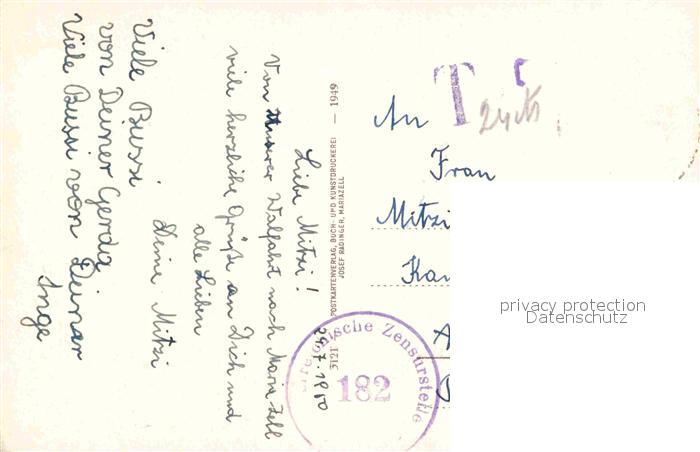 29.7.1950
Liebe Mitzi!
Von unserer Walfahrt nach Maria Zell
viele herzliche Grüße an Dich und
alle Lieben
Deine Mitzi
Viele Bussi
von Deiner Gerda
Viele Bussi von Deiner
Inge
3121 POSTKARTENVERLAG, BUCH- UND KUNSTDRUCKEREI — 1949
JOSEF RADINGER, MARIAZELL
T
An
Frau
Mitzi
Österreichische Zensurstelle
182
privacy protection
Datenschutz